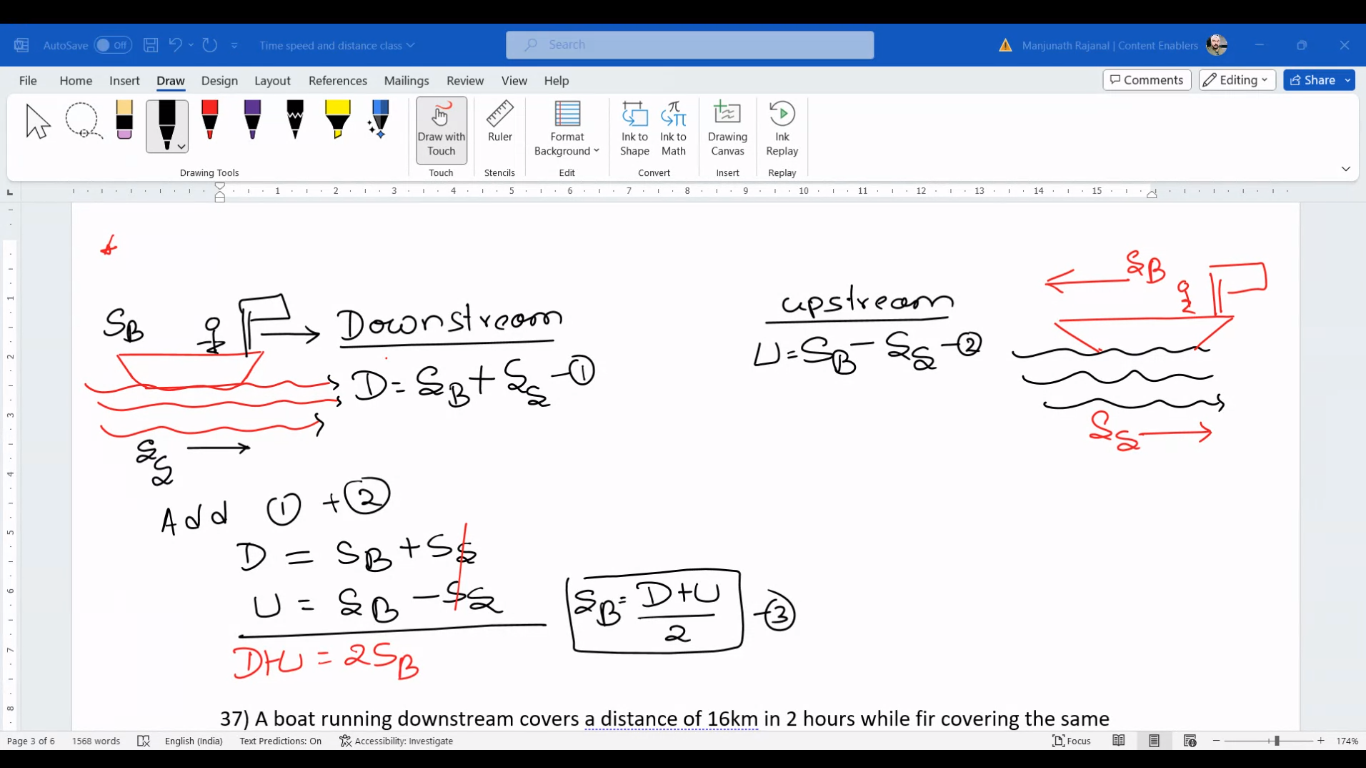 AutoSave Off Time speed and distance class Search Manjunath Rajanal | Content Enablers
File Home Insert Draw Design Layout References Mailings Review View Help Comments Editing Share
Draw with Touch Ruler Format Background Ink to Shape Ink to Math Drawing Canvas Ink Replay
Drawing Tools Touch Stencils Edit Convert Insert Replay
1 2 3 4 5 6 7 8 9 10 11 12 13 14 15
1
2
3
4
5
6
7
8
SB Downstream
D = SB + SS - ①
SS
upstream
U = SB - SS - ②
SB
SS
Add ① + ②
D = SB + SS
U = SB - SS
D+U = 2SB
SB = D+U / 2 - ③
37) A boat running downstream covers a distance of 16km in 2 hours while fir covering the same
Page 3 of 6 1568 words English (India) Text Predictions: On Accessibility: Investigate Focus 174%